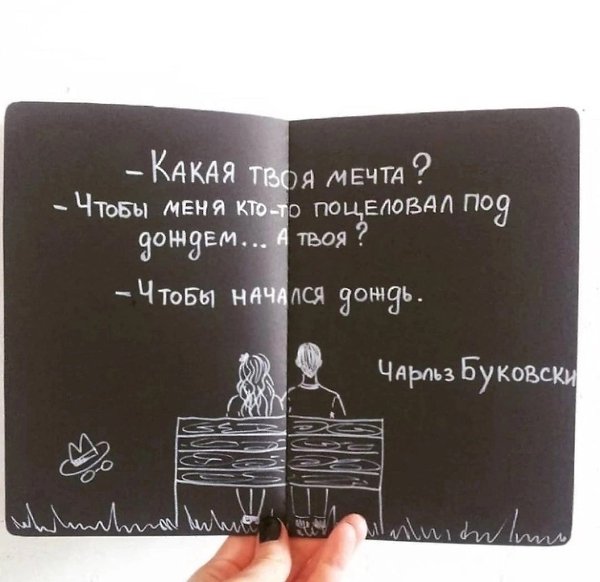 - Какая твоя мечта?
- Чтобы меня кто-то поцеловал под
дождем... А твоя?
- Чтобы начался дождь.
Чарльз Буковски